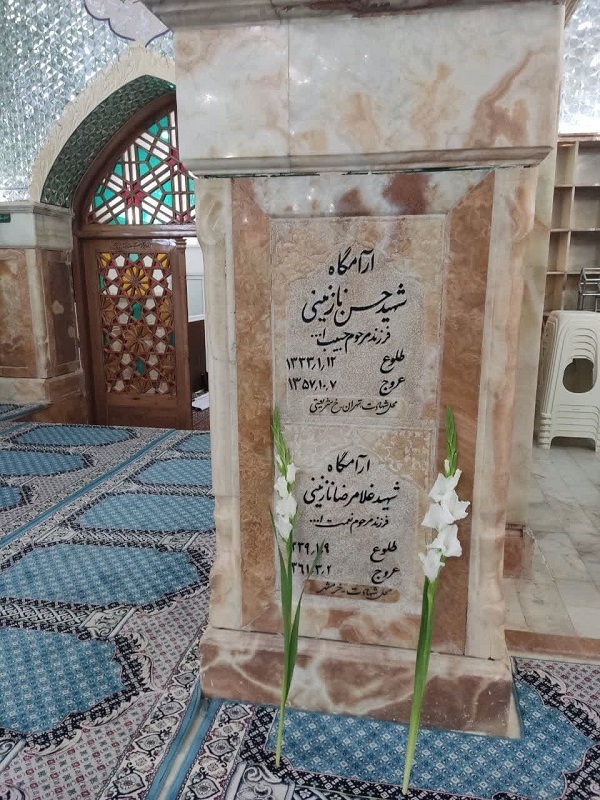 آرامگاه
شهید حسن نازنینی
فرزند مرحوم حبیب ا...
طلوع ۱۳۳۳٫۱٫۱۲
عروج ۱۳۵۷٫۱۰٫۷
محل شهادت تهران_خ شریعتی
آرامگاه
شهید غلامرضا نازنینی
فرزند مرحوم نعمت ا...
طلوع ۳۳۹٫۱٫۹
عروج ۳۶۱٫۳٫۲
محل شهادت _ خرمشهر